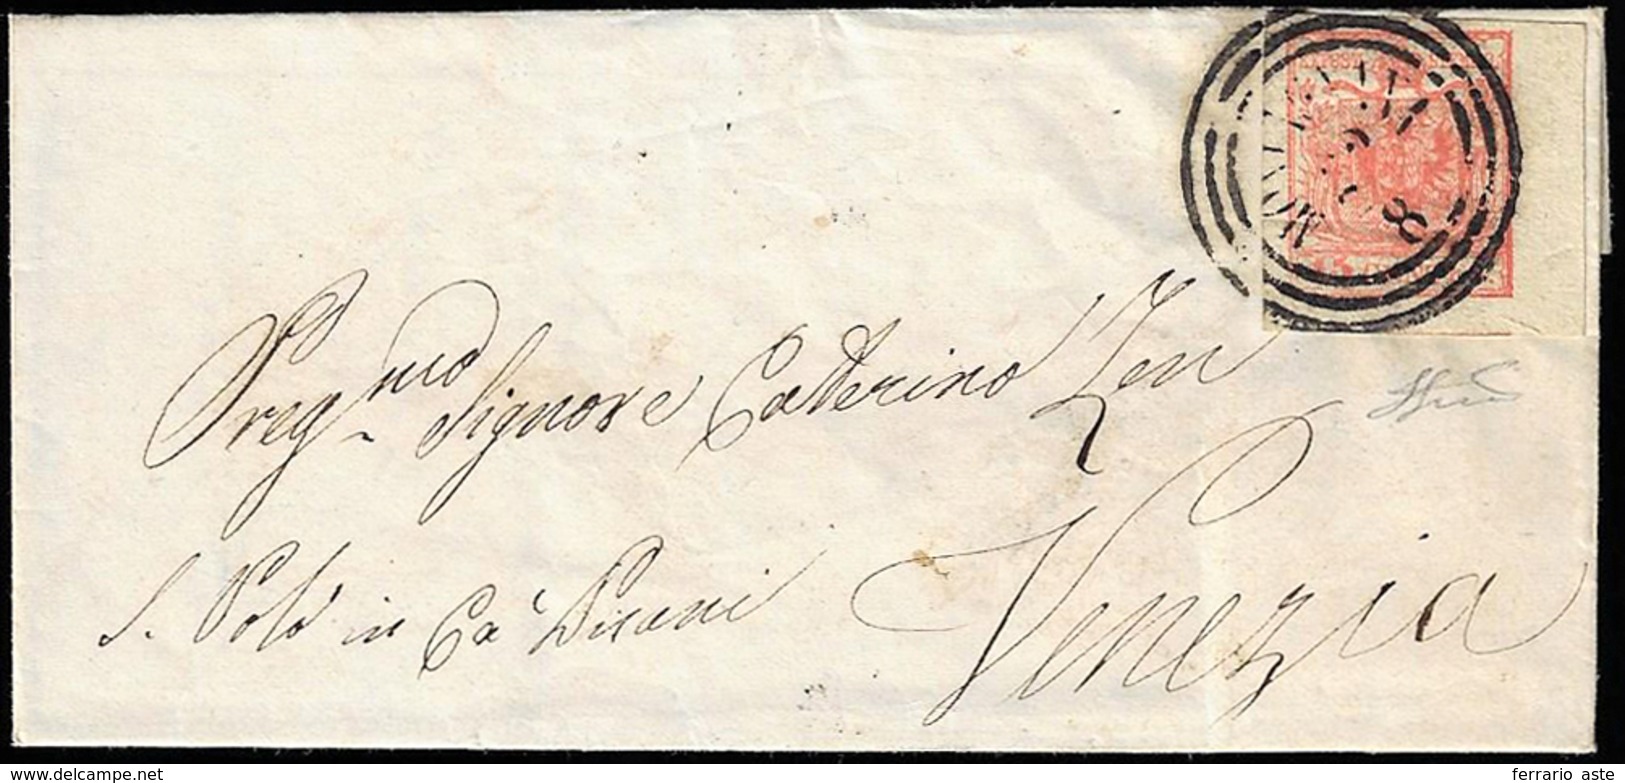 8
Preg.mo Signore Catterino Zen
S. Polo in Ca' Pisani
Venezia
www.delcampe.net
ferrario aste